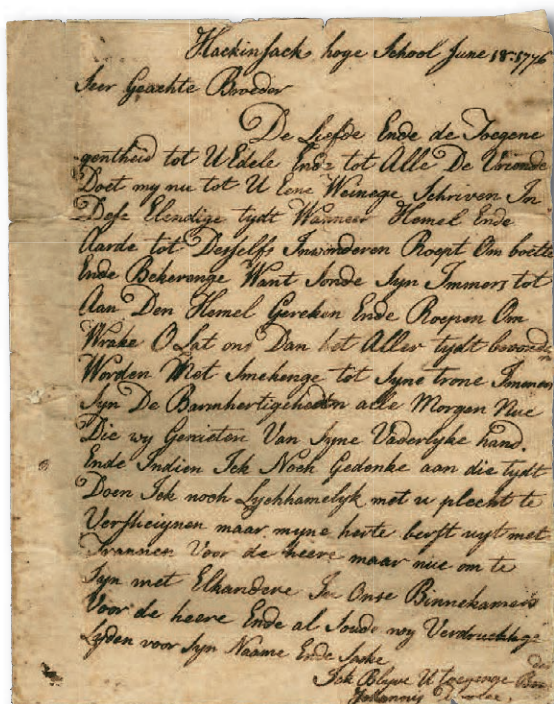 Hackinsack hoge School June 18 1776
Seer Geachte Broeder
De Liefde Ende de Toegene
gentheid tot U Edele Ende tot Alle De Vrionde
Doet my nu tot U Eene Weinege Schriven In
Dese Elendige tydt Wanneer Hemel Ende
Aarde tot Desselfs Inwonderen Roept Om boette
Ende Bekerenge Want Sonde Syn Immers tot
Aan Den Hemel Gereken Ende Roepen Om
Wrake O Lat ons Dan tot Aller tydt bevonden
Worden Met Smekenge tot Syne trone Immers
Syn De Barmhertigeheden alle Morgen Nue
Die wy Genieten Van Syne Vaderlyke hand
Ende Indien Ick Noch Gedenke aan die tydt
Doen Ick noch Lychhamelyk met u plecht te
Verscheijnen maar myne herte berst uyt met
Trannen Voor de heere maar nue om te
Syn met Elkandere In Onse Binnekamers
Voor de heere Ende al Soude wy Verdruckhge
Lyden voor Syn Naame Ende Sake
Ick Blyve U toegenege
Johannis